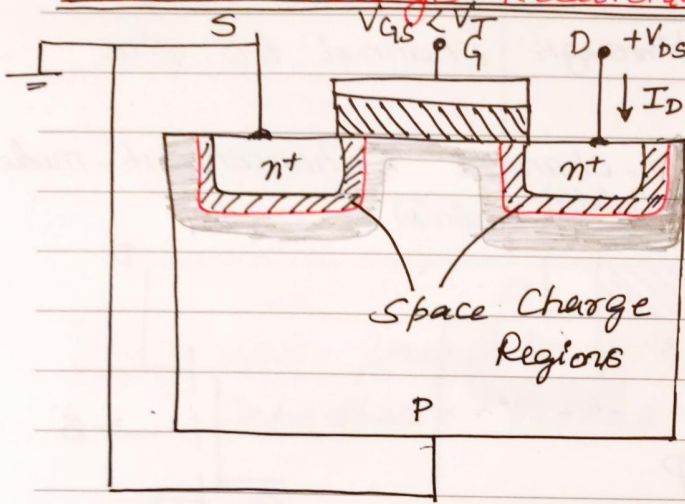 S
V_GS < V_T
G
D +V_DS
I_D
n+ n+
Space Charge
Regions
P